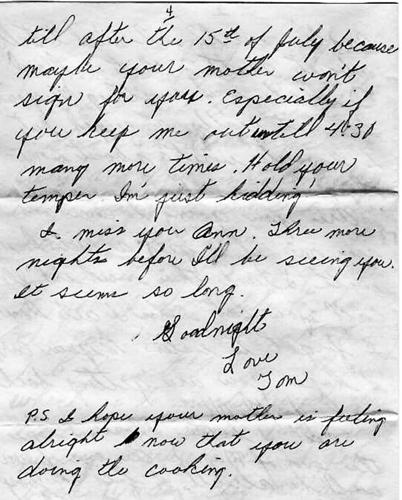 4
till after the 15th of July because
maybe your mother won't
sign for you. Especially if
you keep me out until 4:30
many more times. Hold your
temper. I'm just kidding!
I miss you Ann. Three more
nights before I'll be seeing you.
It seems so long.
Goodnight
Love
Tom
P.S I hope your mother is feeling
alright now that you are
doing the cooking.